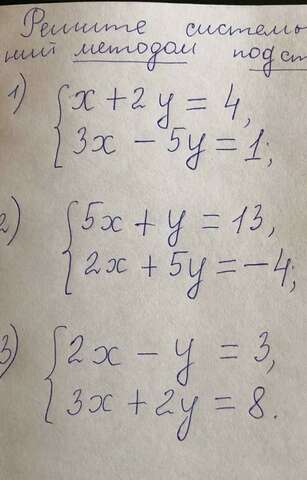 Решите системы
ний методом подст
1) { x + 2y = 4,
3x - 5y = 1;
2) { 5x + y = 13,
2x + 5y = -4;
3) { 2x - y = 3,
3x + 2y = 8.